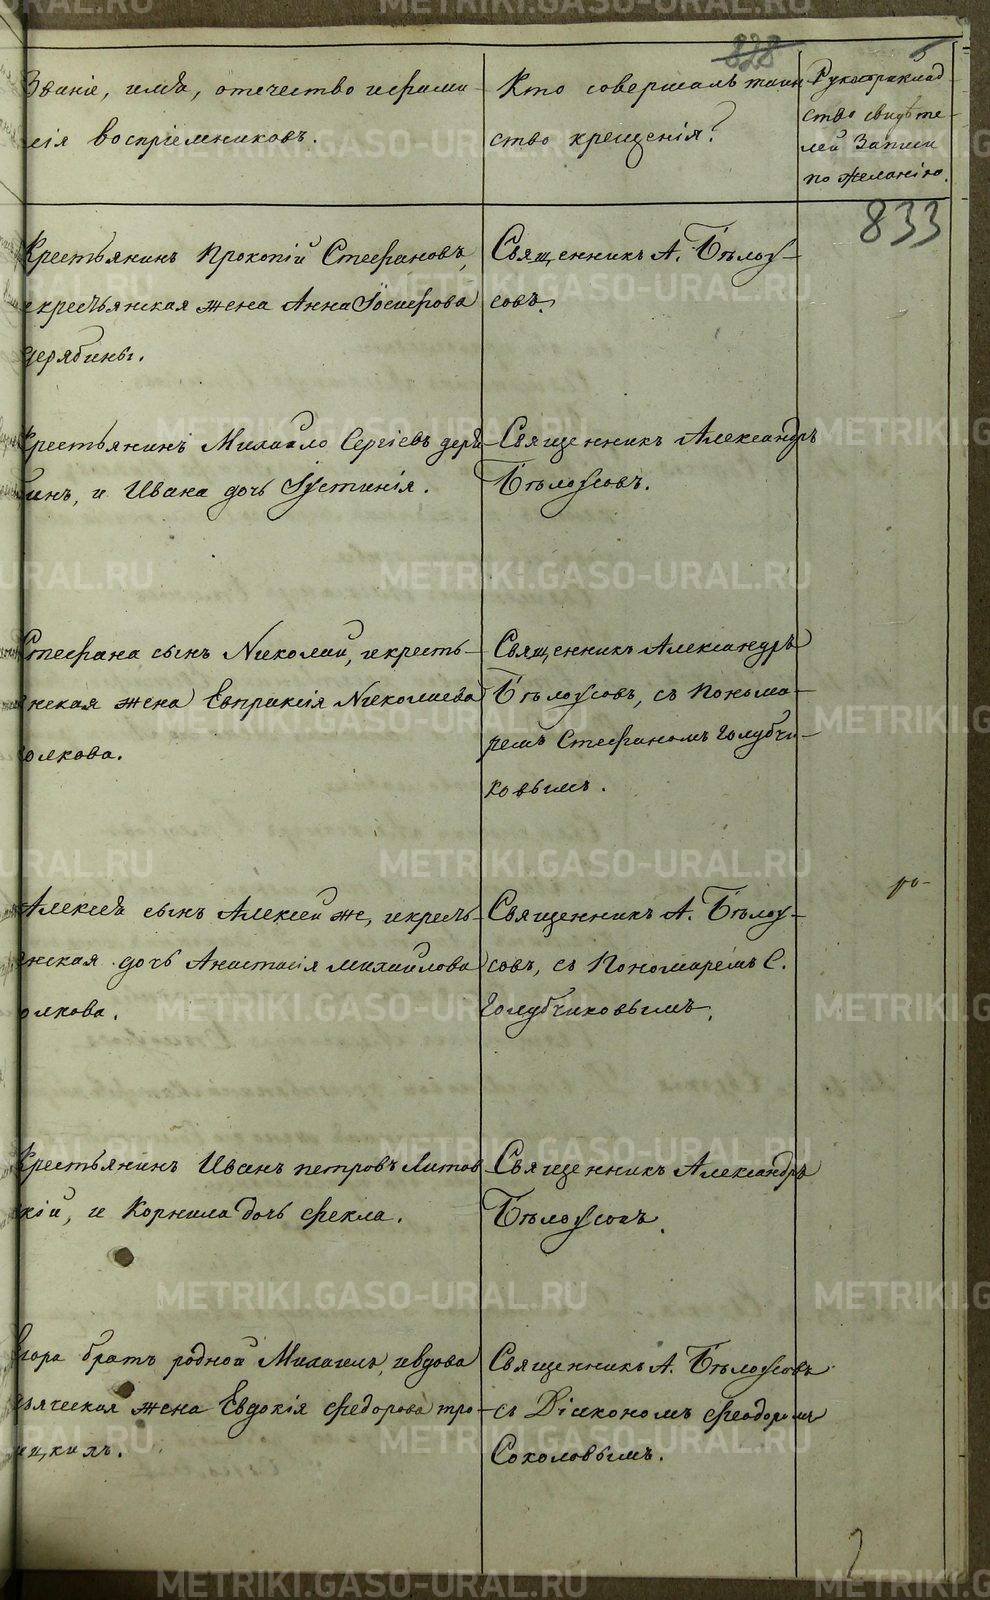 828
Званіе, имя, отечество и фами-
лія воспріемниковъ.
Кто совершалъ таин
ство крещенія?
Рукоприклад
ство свидѣте-
лей записи
по желанію.
833
Крестьянинъ Прокопій Стефановъ,
и крестьянская жена Анна Іосифова
Дерябины.
Священникъ А. Бѣлоу-
совъ.
Крестьянинъ Михайло Сергіевъ Деря
бинъ, и Ивана дочь Іустинія.
Священникъ Александръ
Бѣлоусовъ.
Стефана сынъ Николай, и кресть-
янская жена Евпраксія Николаева
олкова.
Священникъ Александръ
Бѣлоусовъ, съ Понома-
ремъ Стефаномъ Голубчи-
ковымъ.
Алексѣя сынъ Алексѣй же, и кресть-
янская дочь Анастасія Михайлова
олкова.
Священникъ А. Бѣлоу-
совъ, съ Пономаремъ С.
Голубчиковымъ.
Крестьянинъ Иванъ Петровъ Литов
скій, и Корнила дочь Фекла.
Священникъ Александръ
Бѣлоусовъ.
Егора братъ родной Михаилъ, и вдова
дьяческая жена Евдокія Федорова Тро-
ицкихъ.
Священникъ А. Бѣлоусовъ
съ Діакономъ Феодоромъ
Соколовымъ.
METRIKI.GASO-URAL.RU